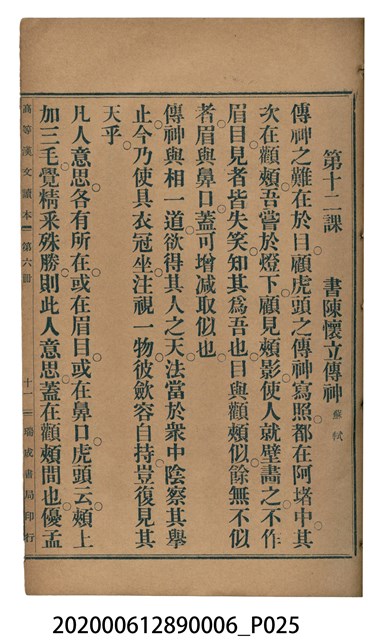 第十二課　書陳懷立傳神　蘇軾
傳神之難在於目顧虎頭之傳神寫照都在阿堵中其
次在顴頰吾嘗於燈下顧見頰影使人就壁畵之不作
眉目見者皆失笑知其爲吾也目與顴頰似餘無不似
者眉與鼻口蓋可增減取似也
傳神與相一道欲得其人之天法當於衆中陰察其舉
止今乃使具衣冠坐注視一物彼歛容自持豈復見其
天乎
凡人意思各有所在或在眉目或在鼻口虎頭云頰上
加三毛覺精釆殊勝則此人意思蓋在顴頰間也優孟
高等漢文讀本　第六册　十一　瑞成書局印行
202000612890006_P025